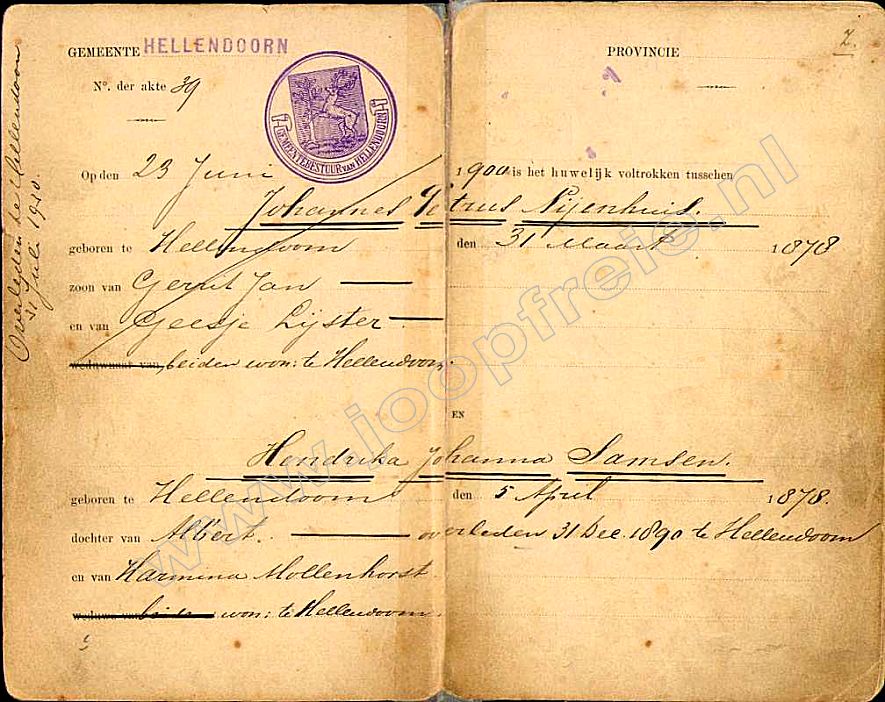 2.
GEMEENTE HELLENDOORN PROVINCIE
Nº. der akte 39
GEMEENTEBESTUUR VAN HELLENDOORN
Op den 23 Juni 1900 is het huwelijk voltrokken tusschen
Johannes Petrus Nijenhuis.
geboren te Hellendoorn den 31 Maart 1878
zoon van Gerrit Jan
en van Geesje Lijster
weduwnaar van, beiden won: te Hellendoorn.
EN
Hendrika Johanna Samsen.
geboren te Hellendoorn den 5 April 1878.
dochter van Albert. overleden 31 Dec. 1890 te Hellendoorn
en van Harmina Mollenhorst
weduwe van won: te Hellendoorn.
Overleden te Hellendoorn
31 Juli 1910.
www.joopfreie.nl